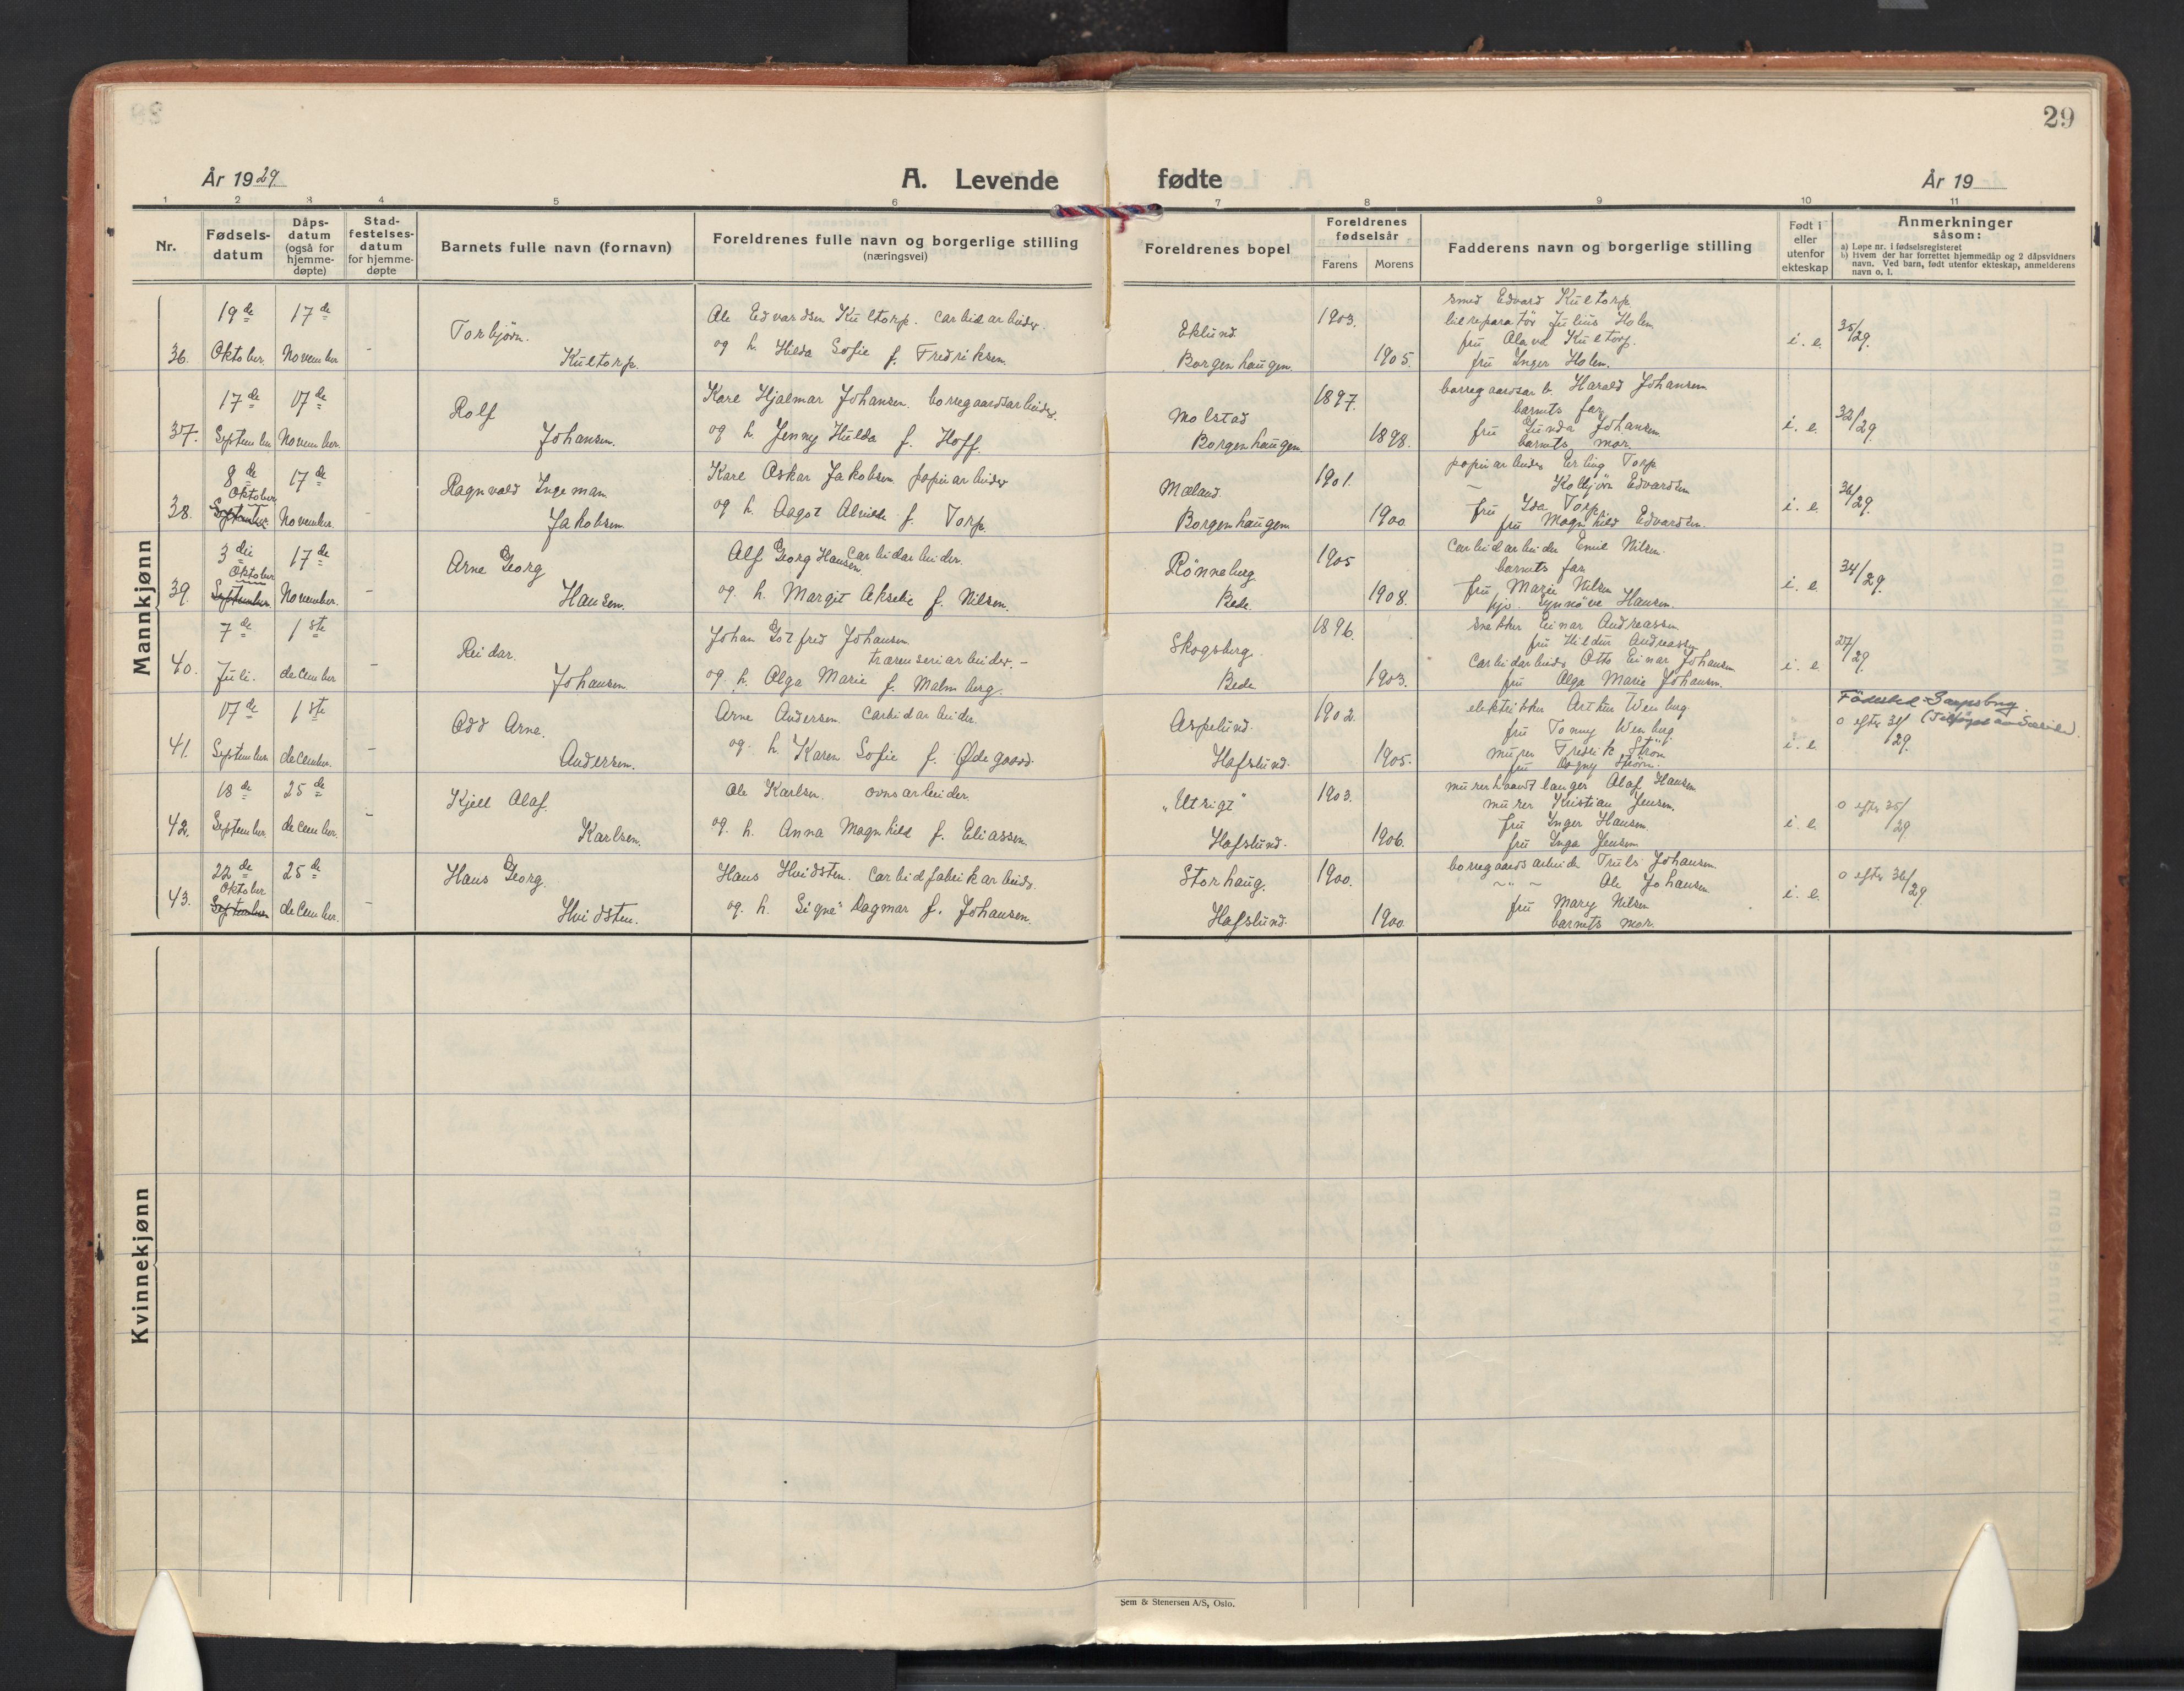 29
År 1929.
A. Levende fødte
År 19
1 2 3 4 5 6 7 8 9 10 11
Nr.
Fødsels-
datum
Dåps-
datum
(også for
hjemme-
døpte)
Stad-
festelses-
datum
for hjemme-
døpte
Barnets fulle navn (fornavn)
Foreldrenes fulle navn og borgerlige stilling
(næringsvei)
Foreldrenes bopel
Foreldrenes
fødselsår
Farens Morens
Fadderens navn og borgerlige stilling
Født i
eller
utenfor
ekteskap
Anmerkninger
såsom:
a) Løpe nr. i fødselsregisteret
b) Hvem der har forrettet hjemmedåp og 2 dåpsvidners
navn. Ved barn, født utenfor ekteskap, anmelderens
navn o. l.
Mannkjønn
36.
19de
Oktober
17de
November
-
Torbjörn.
Kultorp.
Ole Edvardsen Kultorp. Carbidarbeider.
og h. Hilda Sofie f. Fredriksen.
Eklund.
Borgenhaugen
1903.
1905.
smed Edvard Kultorp
bilreparatör Julius Holen
fru Olava Kultorp.
fru Inger Holen.
i. e.
35/29.
37.
17de
September
17de
November.
-
Rolf
Johansen.
Karl Hjalmar Johansen. borregaardsarbeider.
og h. Jenny Hulda f. Hoff.
Molstad
Borgenhaugen
1897.
1898.
borregaardsarb. Harald Johansen
barnets far
fru Gunda Johansen
barnets mor.
i. e.
32/29.
38.
8de
Oktober
September
17de
November.
-
Ragnvald Ingeman
Jakobsen
Karl Oskar Jakobsen papirarbeider
og h. Aagot Alvilde f. Torp.
Mæland.
Borgenhaugen
1901.
1900
papirarbeider Erling Torp
Kolbjörn Edvardsen
fru Ida Torp
fru Magnhild Edvardsen.
i. e.
36/29.
39.
3die
Oktober
September
17de
November.
-
Arne Georg
Hansen.
Alf Georg Hansen Carbidarbeider.
og. h. Margit Akselie f. Nilsen.
Rönneberg.
Bede.
1905
1908.
Carbidarbeider Emil Nilsen.
barnets far
fru Marie Nilsen
frk. Synnöve Hansen.
i. e.
34/29.
40.
7de
Juli.
1ste
december
-
Reidar.
Johansen
Johan Gotfred Johansen
træsnseriarbeider.-
og. h. Olga Marie f. Malmberg.
Skogsberg.
Bede
1896.
1903.
snekker Einar Andreassen
fru Hildur Andreassen
Carbidarbeider Otto Einar Johansen
fru Olga Marie Johansen.
i. e
27/29.
41.
17de
September
1ste
december.
-
Odd Arne.
Andersen.
Arne Andersen. Carbidarbeider.
og. h. Karen Sofie f. Ødegaard.
Aspelund.
Hafslund.
1902.
1905.
elektriker Arthur Wenberg.
fru Tonny Wenberg.
murer Fredrik Ström
fru Dagny Ström.
i. e.
Födested Sarpsborg.
o efter 31/29.
42.
18de
September
25de
december.
-
Kjell Olaf.
Karlsen.
Ole Karlsen. ovnsarbeider.
og. h. Anna Magnhild f. Eliassen
"Utsigt"
Hafslund.
1903.
1906.
murerhaandtlanger Olaf Hansen
murer Kristian Jensen.
fru Inger Hansen.
fru Inga Jensen
i. e.
o efter 35/29
43.
22de
Oktober
September
25de
december.
-
Hans Georg.
Hvidsten.
Hans Hvidsten. Carbidfabrikarbeider.
og. h. Signe Dagmar f. Johansen.
Storhaug.
Hafslund.
1900.
1900.
borregaardsarbeider Truls Johansen.
Ole Johansen
fru Mary Nilsen
barnets mor.
i. e.
o efter 36/29.
Kvinnekjønn
Sem & Stenersen A/S, Oslo.